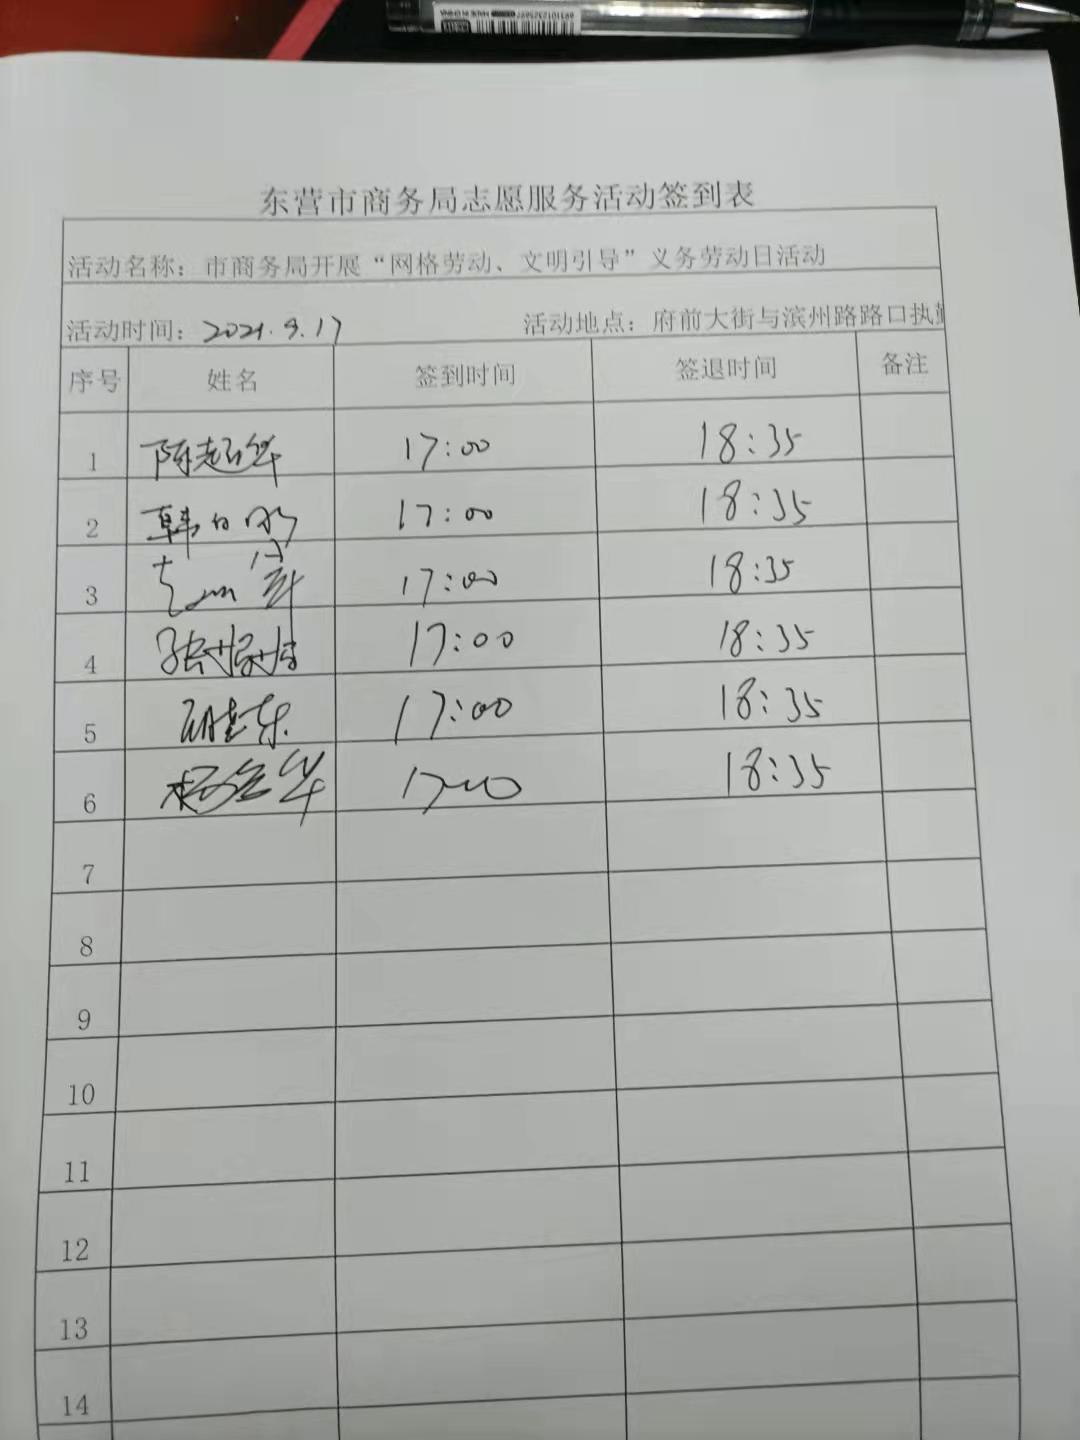 MADE IN CHINA
东营市商务局志愿服务活动签到表
活动名称：市商务局开展“网格劳动、文明引导”义务劳动日活动
活动时间：2021.9.17 活动地点：府前大街与滨州路路口执勤
序号 姓名 签到时间 签退时间 备注
1 陈超华 17:00 18:35
2 韩 17:00 18:35
3 17:00 18:35
4 张 17:00 18:35
5 胡 东 17:00 18:35
6 杨 华 17:00 18:35
7
8
9
10
11
12
13
14